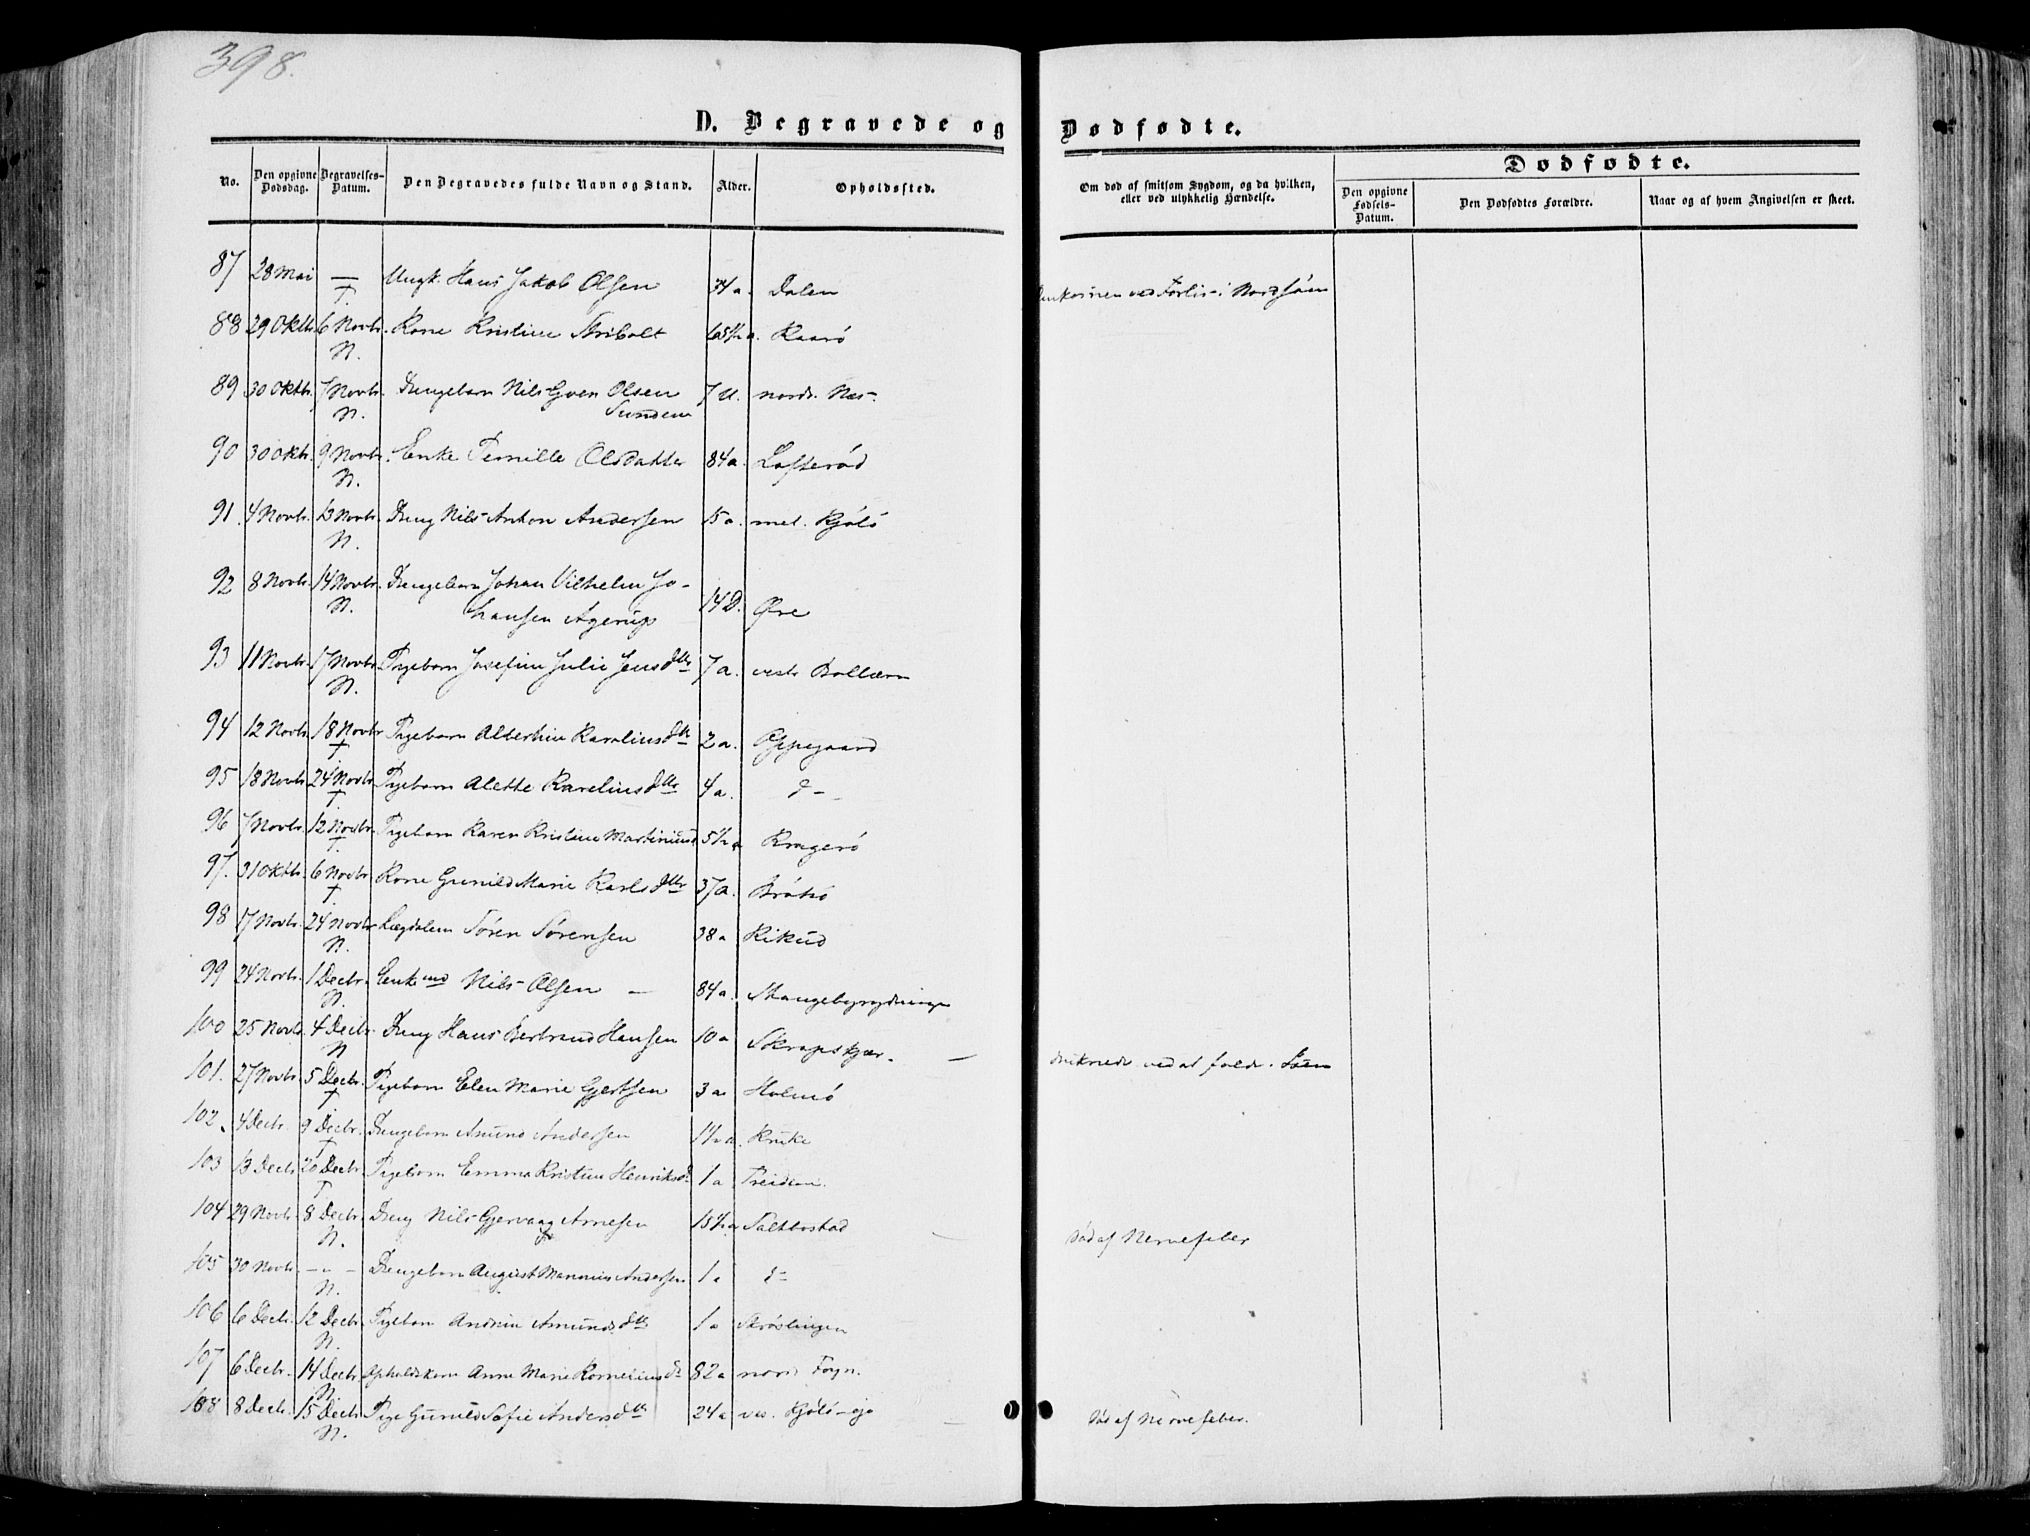 398.
D. Begravede og Dødfødte.
No. Den opgivne Dødsdag. Begravelses-Datum. Den Begravedes fulde Navn og Stand. Alder. Opholdssted. Om død af smitsom Sygdom, og da hvilken, eller ved ulykkelig Hændelse.
Dødfødte.
Den opgivne Fødsels-Datum. Den Dødfødtes Forældre. Naar og af hvem Angivelsen er skeet.
87 28 Mai — † Ungk. Hans Jakob Olsen Dalen ved Forlis i Nordsøen
88 29 Oktb. 6 Novbr. N. Kone Kristine 65½ a. Kaarø
89 30 Oktb. 7 Novbr. N. Drengebarn Nils Olsen 7 U. nordr. Næs
Sundene
90 30 Oktb. 9 Novbr. N. Enke Pernille Olsdatter 84 a. Lofterød
91. 4 Novbr. 13 Novbr. N. Dreng Nils Anton Andersen 15 a. mel. Kjøl
92 8 Novbr. 14 Novbr. N. Drengebarn Johan Vilhelm Jo-
hansen Agerup 14 D. Øre
93 11 Novbr. 17 Novbr. N. Pigebarn Josefine Julie Jensdttr 7 a. vestr. Bollærn
94 12 Novbr. 18 Novbr † Pigebarn Albertine Karoliusdttr 2 a.
95 18 Novbr 24 Novbr † Pigebarn Alette Kareliusdttr 4 a. d–
96 7 Novbr. 12 Novbr. † Pigebarn Karen Kristine Martiniusd 5½ a Kragerø
97. 31 Oktb. 6 Novbr † Kone Gunild Marie Karlsdttr 37 a. Brøtsø
98 17 Novbr. 24 Novbr N. Lægdslem Søren Sørensen 38 a Kikud
99 24 Novbr. 1 Decbr. N. Enkemd Nils Olsen — 84 a.
100 25 Novbr. 4 Decbr. N Dreng Hans Bertrand Hansen 10 a Skrapskjær. —
101. 27 Novbr. 5 Decbr. † Pigebarn Elen Marie Gjertsen 3 a Holmø druknede ved at falde i Søen
102. 4 Decbr. 9 Decbr. † Drengebarn Amund Andersen 1½ a. Kruke
103 13 Decbr. 20 Decbr † Pigebarn Emma Kristine Henriksd 1 a Treidene.
104 29 Novbr. 8 Decbr. N. Dreng Nils Gjervaag Arnesen 15½ a Saltbostad — død af Nervefeber
105 30 Novbr. – " – N. Drengebarn August Andersen 1 a d–
106 6 Decbr. 12 Decbr N. Pigebarn Andrine Amundsdttr 1 a
107 6 Decbr. 14 Decbr N. Opholdskone Anne Marie Korneliusdr 82 a nord Føyn.
108 8 Decbr. 15 Decbr N. Pige Gunild Sofie Andersdttr 24 a — død af Nervefeber.